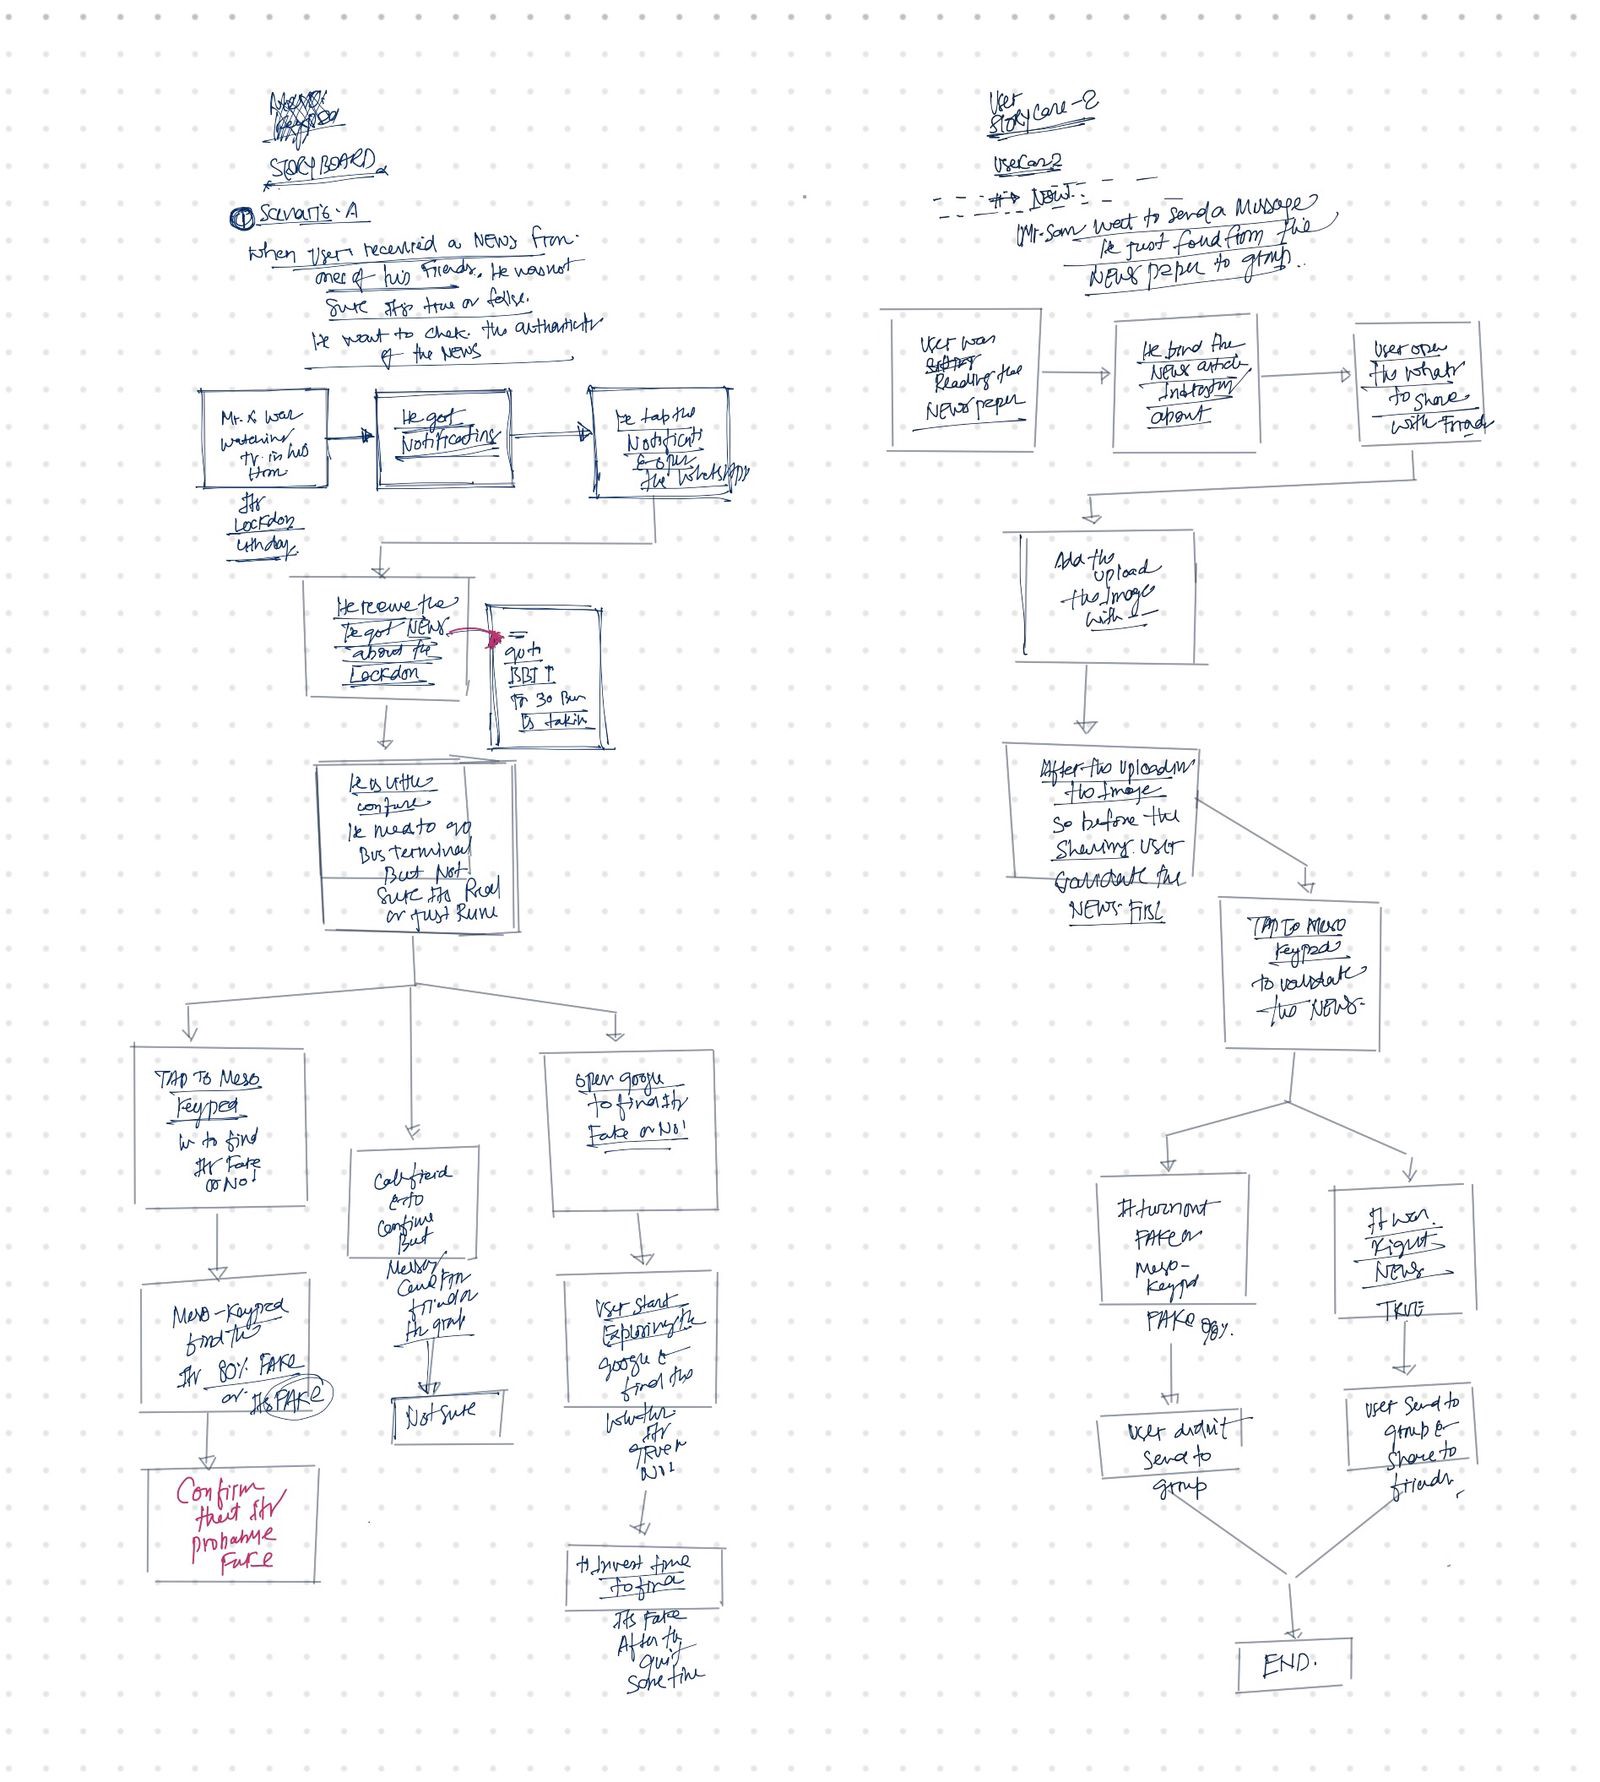 STORYBOARD
① Scenario-A
When User received a NEWS from
ones of his Friends. He was not
Sure Its true or false.
He want to chek the authenticity
of the NEWS
Mr. was
watching
tv. in his
Its
Lockdon
4th day
He got
Notification
He tap the
Notificati
& open
the WhatsApp
He receive the
He got NEWS
about the
Lockdon
go to
for 30 Bus
Is takin
He is little
confuse
He need to go
Bus terminal
But Not
Sure Its Real
or just Rume
TAP TO Meso
Keypad
to find
Its Fake
or No!
Meso-Keypad
find the
Its 80% FAKE
or Its FAKE
Confirm
that Its
probablye
Fake
Call friend
But
friend or
Not sure
open google
to find Its
Fake or No!
User Start
Exploring the
google &
find the
whether
Its
No!
to Invest time
to find
Its Fake
After the
quit
Some time
User
User
NEWS
Mr. Sam want to send a Message
He just found from the
NEWS paper to group..
User was
Reading the
NEWS paper
He find the
NEWS article
about
User open
the whats
to share
with Friend
Add the
upload
the Image
with
After the Uploading
the Image
So before the
Sharing User
validate the
NEWS First
TAP TO Meso
Keypad
to validate
the NEWS.
It turn out
FAKE on
Meso-
Keypad
FAKE 98%.
User didnit
Send to
group
It was
Right
NEWS
TRUE
User Send to
group &
Share to
friends
END.